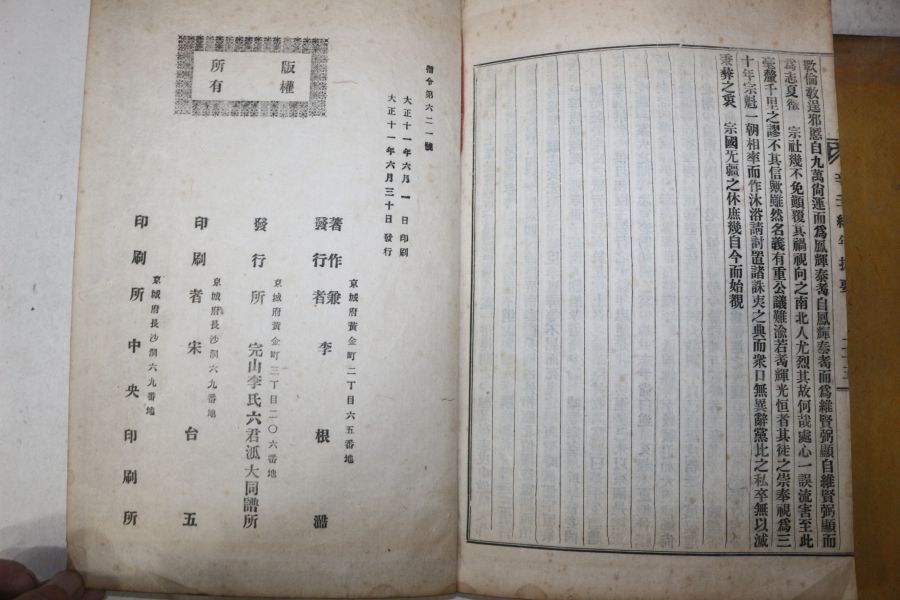 敢倫敢逞邪慝自九萬尙運而爲鳳輝泰耉自鳳輝泰耉而爲維賢弼顯自維賢弼顯而
爲志夏徵　宗社幾不免顚覆其禍視向之南北人尤烈其故何哉處心一誤流害至此
毫釐千里之謬不其信歟雖然名義有重公議難渝若耉輝光恒者其徒之崇奉視爲三
十年宗魁一朝相率而作沐浴請討置諸誅夷之典而衆口無異辭黨比之私卒無以滅
秉彝之衷　宗國无疆之休庶幾自今而始覩
版權
所有
指令第六二一號
大正十一年六月一日印刷
大正十一年六月三十日發行
京城府黃金町二丁目六五番地
著作兼
發行者 李根澔
京城府黃金町三丁目二〇六番地
發行所 完山李氏六君派大同譜所
京城府長沙洞六九番地
印刷者 宋台五
京城府長沙洞六九番地
印刷所 中央印刷所